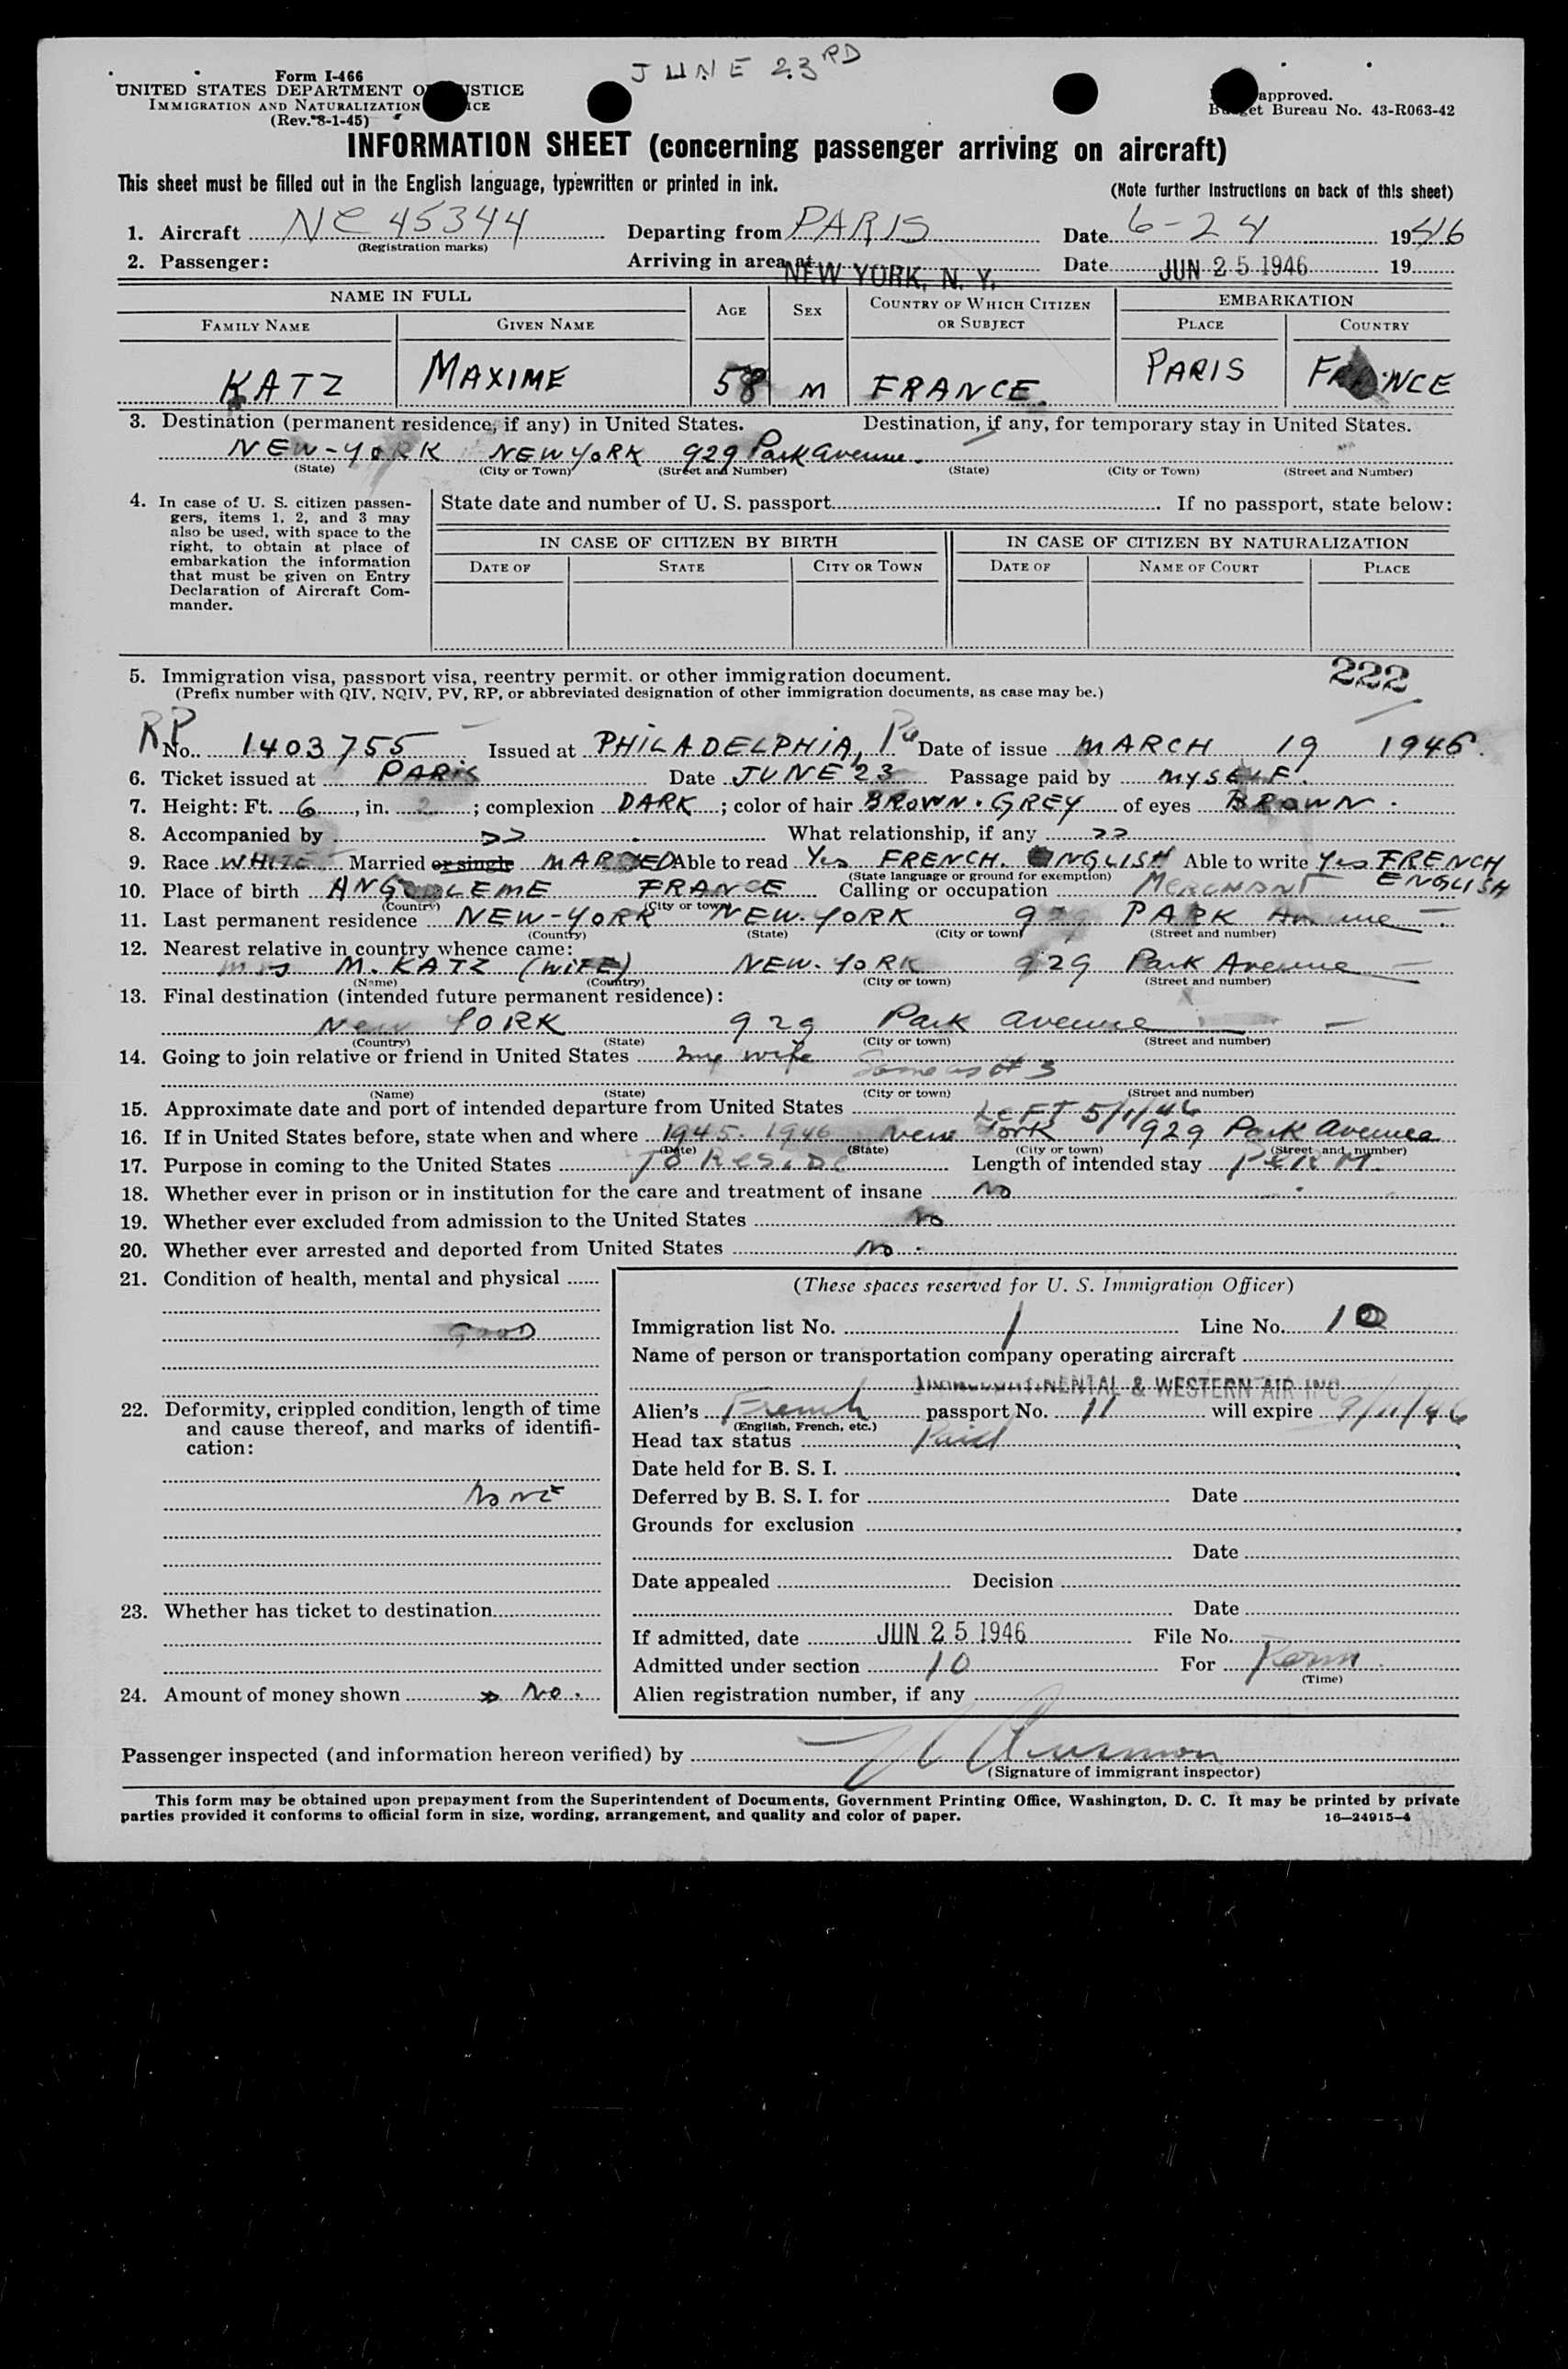 JUNE 23RD
Form I-466
UNITED STATES DEPARTMENT O STICE
IMMIGRATION AND NATURALIZATION ICE
(Rev. 8-1-45)
approved.
Budget Bureau No. 43-R063-42
INFORMATION SHEET (concerning passenger arriving on aircraft)
This sheet must be filled out in the English language, typewritten or printed in ink.
(Note further instructions on back of this sheet)
1. Aircraft NC 45344 Departing from PARIS Date 6-24 1946
(Registration marks)
2. Passenger: Arriving in area at NEW YORK, N. Y. Date JUN 25 1946 19
NAME IN FULL AGE SEX COUNTRY OF WHICH CITIZEN OR SUBJECT EMBARKATION
FAMILY NAME GIVEN NAME PLACE COUNTRY
KATZ MAXIME 58 M FRANCE. PARIS FRANCE
3. Destination (permanent residence, if any) in United States. Destination, if any, for temporary stay in United States.
NEW-YORK NEW YORK 929 Park Avenue.
(State) (City or Town) (Street and Number) (State) (City or Town) (Street and Number)
4. In case of U. S. citizen passen-
gers, items 1, 2, and 3 may
also be used, with space to the
right, to obtain at place of
embarkation the information
that must be given on Entry
Declaration of Aircraft Com-
mander.
State date and number of U. S. passport If no passport, state below:
IN CASE OF CITIZEN BY BIRTH IN CASE OF CITIZEN BY NATURALIZATION
DATE OF STATE CITY OR TOWN DATE OF NAME OF COURT PLACE
5. Immigration visa, passport visa, reentry permit, or other immigration document.
222
(Prefix number with QIV, NQIV, PV, RP, or abbreviated designation of other immigration documents, as case may be.)
RP No. 1403755 Issued at PHILADELPHIA, Pa Date of issue MARCH 19 1946.
6. Ticket issued at PARIS Date JUNE 23 Passage paid by MYSELF.
7. Height: Ft. 6, in. 2; complexion DARK; color of hair BROWN. GREY of eyes BROWN.
8. Accompanied by >> What relationship, if any >>
9. Race WHITE Married or single MARRIED Able to read Yes FRENCH. ENGLISH Able to write Yes FRENCH
(State language or ground for exemption) ENGLISH
10. Place of birth ANGOULEME FRANCE Calling or occupation MERCHANT
(Country) (City or town)
11. Last permanent residence NEW-YORK NEW-YORK 929 PARK Avenue
(Country) (State) (City or town) (Street and number)
12. Nearest relative in country whence came:
Mrs M. KATZ (WIFE) NEW-YORK 929 Park Avenue
(Name) (Country) (City or town) (Street and number)
13. Final destination (intended future permanent residence):
New YORK 929 Park avenue
(Country) (State) (City or town) (Street and number)
14. Going to join relative or friend in United States my wife Same as # 3
(Name) (State) (City or town) (Street and number)
15. Approximate date and port of intended departure from United States LEFT 5/1/46
16. If in United States before, state when and where 1945-1946 New York 929 Park avenue
(Date) (State) (City or town) (Street and number)
17. Purpose in coming to the United States TO RESIDE Length of intended stay PERM.
18. Whether ever in prison or in institution for the care and treatment of insane No
19. Whether ever excluded from admission to the United States No
20. Whether ever arrested and deported from United States No.
21. Condition of health, mental and physical
GOOD
22. Deformity, crippled condition, length of time
and cause thereof, and marks of identifi-
cation:
NONE
23. Whether has ticket to destination
24. Amount of money shown No.
(These spaces reserved for U. S. Immigration Officer)
Immigration list No. 1 Line No. 10
Name of person or transportation company operating aircraft
TRANSCONTINENTAL & WESTERN AIR INC
Alien's French passport No. 11 will expire 9/11/46
(English, French, etc.)
Head tax status Paid
Date held for B. S. I.
Deferred by B. S. I. for Date
Grounds for exclusion
Date
Date appealed Decision
Date
If admitted, date JUN 25 1946 File No.
Admitted under section 10 For Perm
(Time)
Alien registration number, if any
Passenger inspected (and information hereon verified) by
(Signature of immigrant inspector)
This form may be obtained upon prepayment from the Superintendent of Documents, Government Printing Office, Washington, D. C. It may be printed by private
parties provided it conforms to official form in size, wording, arrangement, and quality and color of paper. 16—24915-4